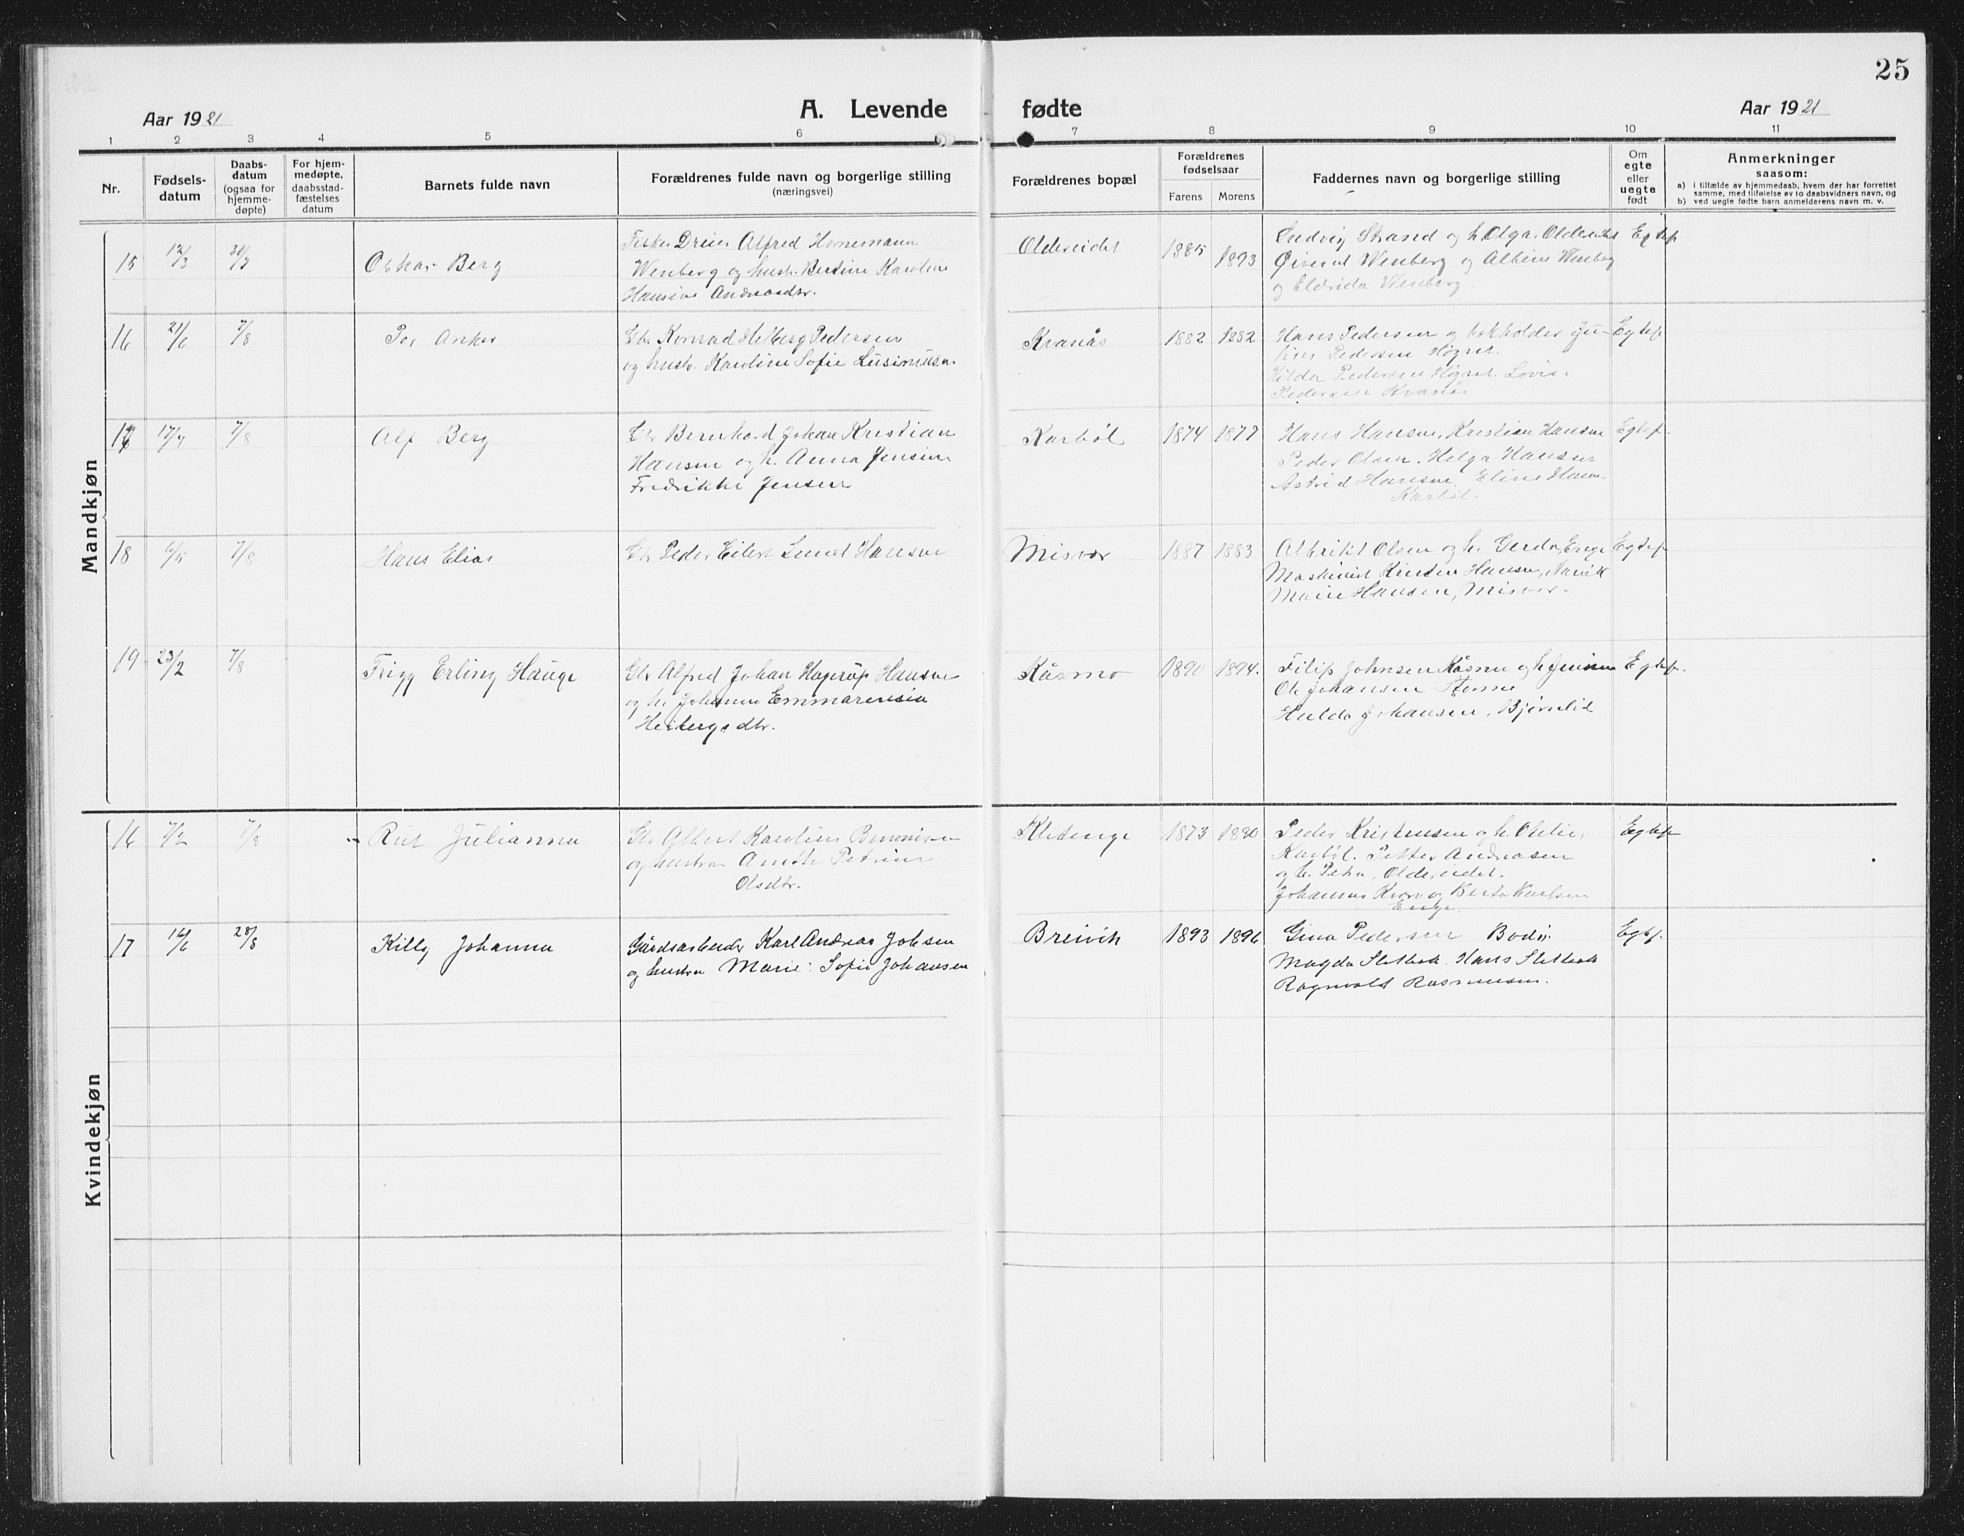 25
Aar 1921
A. Levende fødte
Aar 1921
1 2 3 4 5 6 7 8 9 10 11
Nr.
Fødsels-
datum
Daabs-
datum
(ogsaa for
hjemme-
døpte)
For hjem-
medøpte,
daabsstad-
fæstelses
datum
Barnets fulde navn
Forældrenes fulde navn og borgerlige stilling
(næringsvei)
Forældrenes bopæl
Forældrenes
fødselsaar
Farens
Morens
Faddernes navn og borgerlige stilling
Om
egte
eller
uegte
født
Anmerkninger
saasom:
a) i tilfælde av hjemmedaab, hvem der har forrettet
samme, med tilføielse av to daabsvidners navn, og
b) ved uegte fødte barn anmelderens navn m. v.
Mandkjøn
15 12/3 Oskar Berg
Fisker Dreier Alfred Hornemann
Wenberg og hustr. Bertine Karoline
Hansine Andreasdtr.
Oldereidet 1885 1893
Ludvig Strand og h. Olga, Oldereidet
Wenberg og Albine Wenberg
og Eldrida Wenberg
Egtef
16 21/6 7/8 Per Anker
Gbr. Konrad Helberg Pedersen
og hustr. Karoline Sofie
Kvanås 1882
Hans Pedersen og bokholder
Pedersen Høgset.
Hilda Pedersen Høgset. Lovise
Pedersen Kvanås
Egtef
17 17/7 7/8 Alf Berg
Gbr. Bernhard Johan Kristian
Hansen og h. Anna Jensine
Fredrikke Jensen
Karbøl 1874 1877
Hans Hansen, Kristian Hansen
Peder Olsen. Helga Hansen
Astrid Hansen. Eline Hansen
Karbøl.
Egtef.
18 6/5 7/8 Hans Elias
Gbr. Peder Eilert Hansen
Misvær 1887 1883
Albrikt Olsen og h. Gerda, Enge
Maskinist Kristen Hansen, Narvik
Marie Hansen, Misvær.
Egtef
19 23/2 7/8 Frigg Erling Hauge
Gbr. Alfred Johan Hagerup Hansen
og h. Johanne Emmarensia
Heibergsdtr.
Kåsmo 1890 1894.
Filip Johnsen Kåsmo og h.
Ole Johansen
Hulda Johansen, Bjørnlid
Egtef.
Kvindekjøn
16 7/2 7/8 Rut Julianna
Gbr. Albert Karolius
og hustru Petrine
Olsdtr.
Kletenge 1873 1880
Peder Kristensen og h. Otelie,
Karbøl. Petter Andreasen
og h. Petra, Oldereidet.
Johannes og Berta Karlsen
Enge
Egtef
17 16/6 28/8 Killy Johanna
Gårdsarbeider Karl Andreas Johsen
og hustru Marie Sofie Johansen
Breivik 1893 1896
Gina Pedersen Bodø.
Magda Sletbak. Hans Sletbak
Ragnvald Rasmussen.
Egtef.